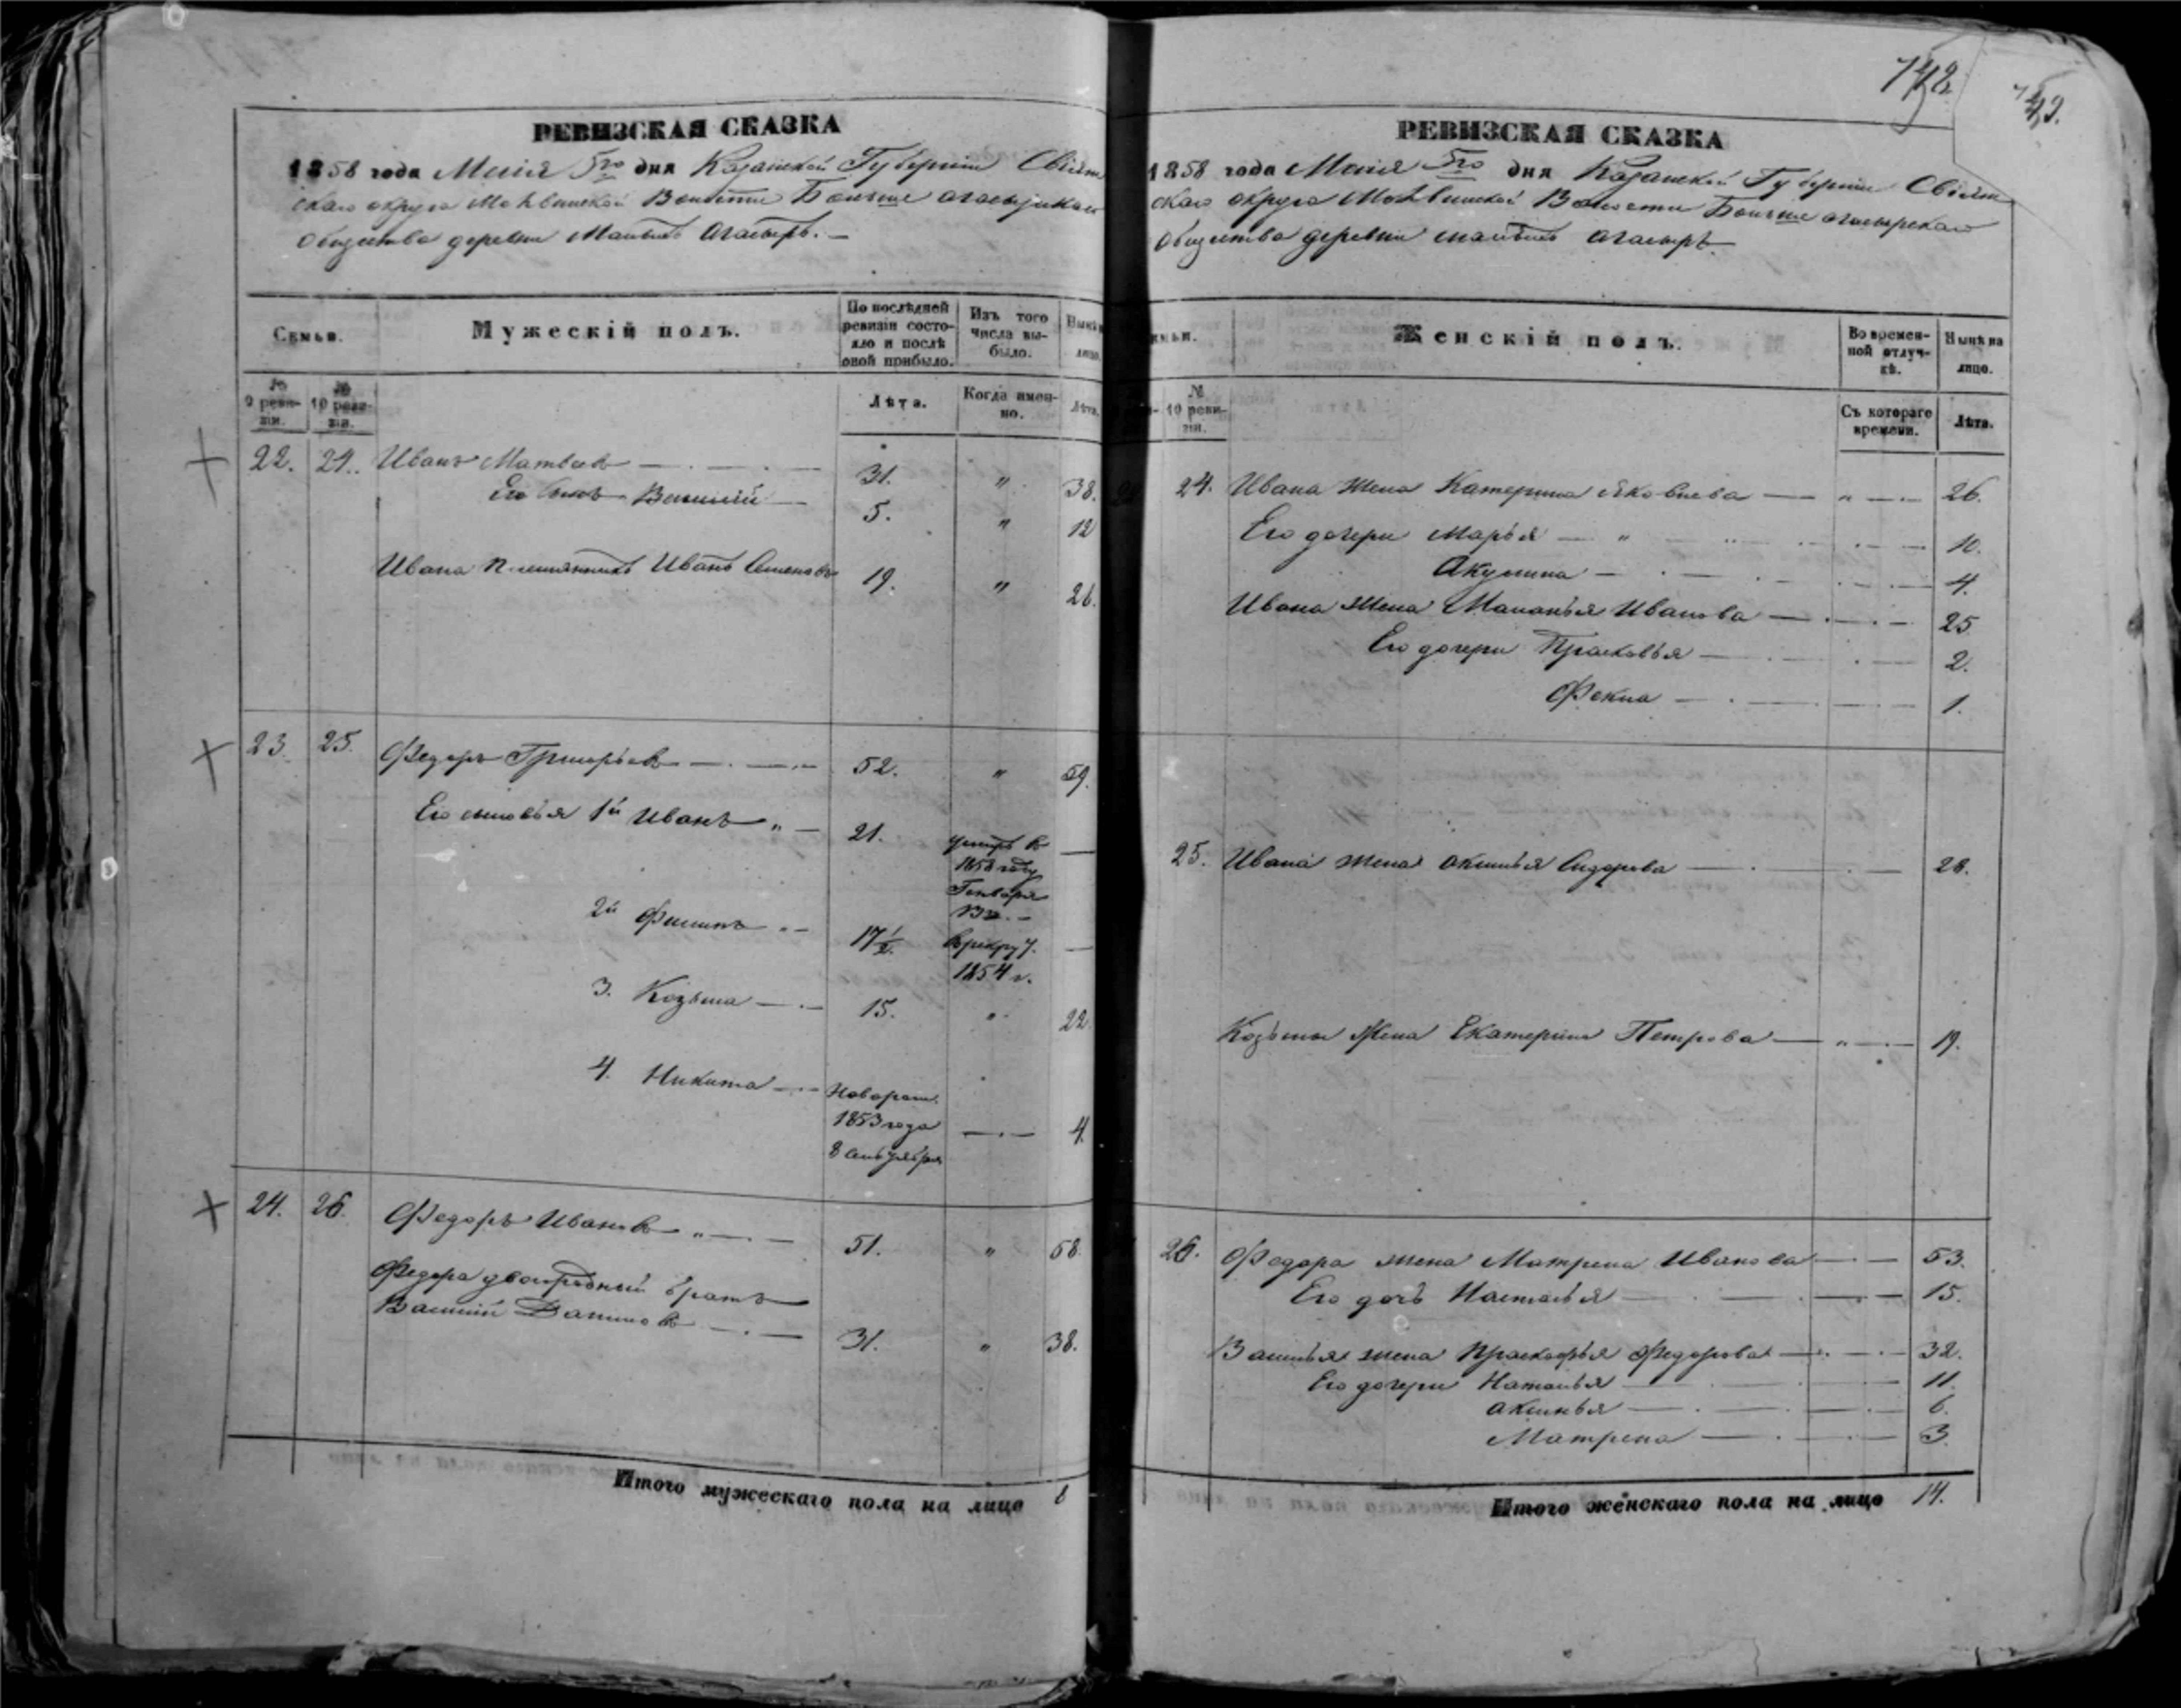 742.
743.
РЕВИЗСКАЯ СКАЗКА
1858 года Маія 5го дня Казанской Губерніи Свіяж
скаго округа Волости Больше
Общества деревни Малыхъ
Семьи.
Мужескій полъ.
По послѣдней ревизіи состояло и послѣ оной прибыло.
Изъ того числа выбыло.
Нынѣ лицо.
№ 9 ревизіи.
№ 10 ревизіи.
Лѣта.
Когда именно.
Лѣта.
22. 24. Иванъ Матвѣевъ 31. " 38.
Его сынъ Василій 5. " 12
Ивана племянникъ Иванъ Семеновъ 19. " 26.
23. 25. Федоръ Григорьевъ 52. " 59.
Его сыновья 1й Иванъ " 21. умеръ въ —
1858 году
Генваря
2й Филипъ 17½. в рекрут. —
1854 г.
3. Козьма 15. " 22
4. Никита Новорож.
1853 года — 4.
8 Сентября
24. 26. Федоръ Ивановъ " 51. " 58.
Федора двоюродный братъ
Василій Даниловъ 31. " 38.
Итого мужескаго пола на лицо 8
РЕВИЗСКАЯ СКАЗКА
1858 года Маія 5го дня Казанской Губерніи Свіяж
скаго округа Волости Больше
Общества деревни малыхъ
Семьи.
Женскій полъ.
Во временной отлучкѣ.
Нынѣ на лицо.
№ 10 ревизіи.
Съ котораго времени.
Лѣта.
24. Ивана жена Катерина Яковлева — " — 26.
Его дочери Марья — " 10.
Акулина — 4.
Ивана жена Маланья Иванова — 25
Его дочери Прасковья — 2.
Фекла — 1.
25. Ивана жена Аксинья Сидорова — 28.
Козьмы Жена Екатерина Петрова — " — 19.
26. Федора жена Матрена Иванова — 53.
Его дочь Настасья — 15.
Василья жена Прасковья Федорова — 32.
Его дочери Наталья — 11.
Аксинья — 6.
Матрена — 3.
Итого женскаго пола на лицо 14.